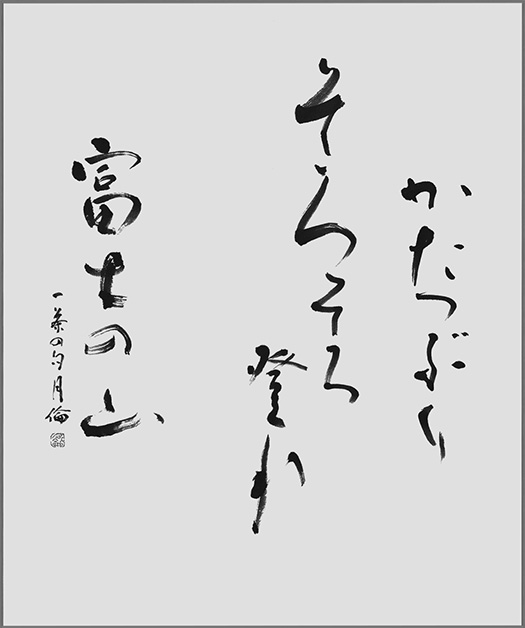 かたつぶり
そろそろ登れ
富士の山
一茶の句月倫